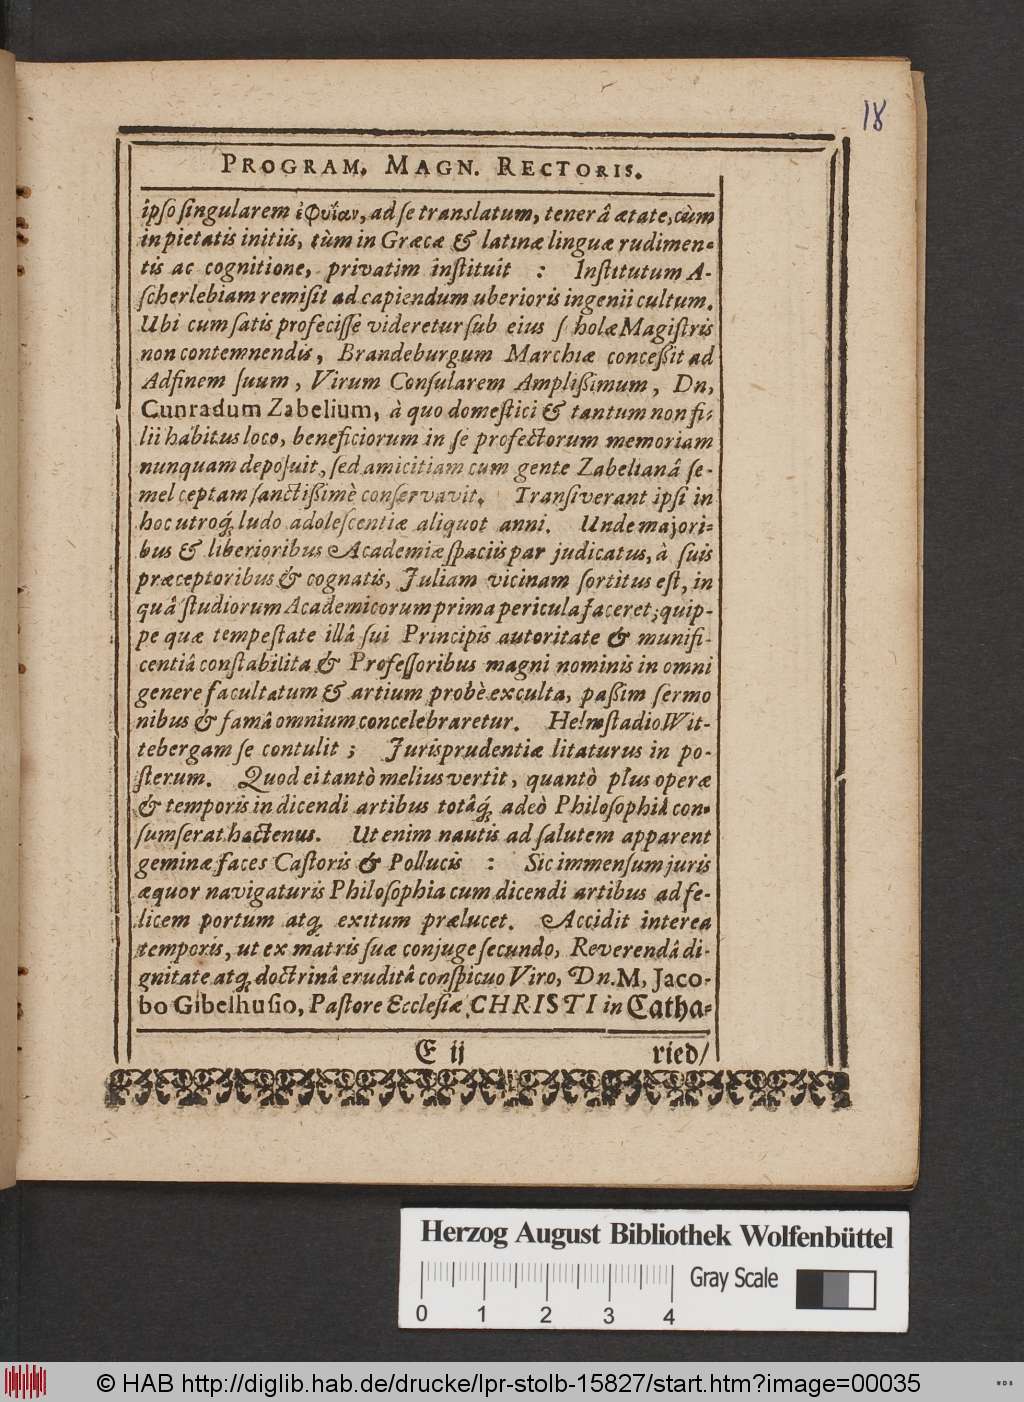 18
PROGRAM. MAGN. RECTORIS.
ipſo ſingularem ἐφυΐαν, ad ſe translatum, tenerâ ætate, cùm
in pietatis initiis, tùm in Græcæ & latinæ linguæ rudimen-
tis ac cognitione, privatim inſtituit : Inſtitutum A-
ſcherlebiam remiſit ad capiendum uberioris ingenii cultum.
Ubi cum ſatis profeciſſe videretur ſub eius ſ holæ Magiſtris
non contemnendis, Brandeburgum Marchiæ conceßit ad
Adfinem ſuum, Virum Conſularem Amplißimum, Dn,
Cunradum Zabelium, à quo domeſtici & tantum non fi-
lii habitus loco, beneficiorum in ſe profectorum memoriam
nunquam depoſuit, ſed amicitiam cum gente Zabelianâ ſe-
mel ceptam ſanctißimè conſervavit. Tranſiverant ipſi in
hoc utroq́; ludo adoleſcentiæ aliquot anni. Unde majori-
bus & liberioribus Academiæ ſpaciis par judicatus, à ſuis
præceptoribus & cognatis, Juliam vicinam ſortitus eſt, in
quâ ſtudiorum Academicorum prima pericula faceret; quip-
pe quæ tempeſtate illâ ſui Principis autoritate & munifi-
centiâ conſtabilita & Profeſſoribus magni nominis in omni
genere facultatum & artium probè exculta, paßim ſermo
nibus & famâ omnium concelebraretur. Helmſtadio Wit-
tebergam ſe contulit ; Jurisprudentiæ litaturus in po-
ſterum. Quod ei tantò melius vertit, quantò plus operæ
& temporis in dicendi artibus totâq́; adeò Philoſophiâ con-
ſumſerat hactenus. Ut enim nautis ad ſalutem apparent
geminæ faces Caſtoris & Pollucis : Sic immenſum juris
æquor navigaturis Philoſophia cum dicendi artibus ad fe-
licem portum atq; exitum prælucet. Accidit interea
temporis, ut ex matris ſuæ conjuge ſecundo, Reverendâ di-
gnitate atq; doctrinâ eruditâ conſpicuo Viro, Dn. M. Jaco-
bo Gibelhuſio, Paſtore Eccleſiæ CHRISTI in Catha-
E ij
ried/
Herzog August Bibliothek Wolfenbüttel
Gray Scale
0 1 2 3 4
© HAB http://diglib.hab.de/drucke/lpr-stolb-15827/start.htm?image=00035